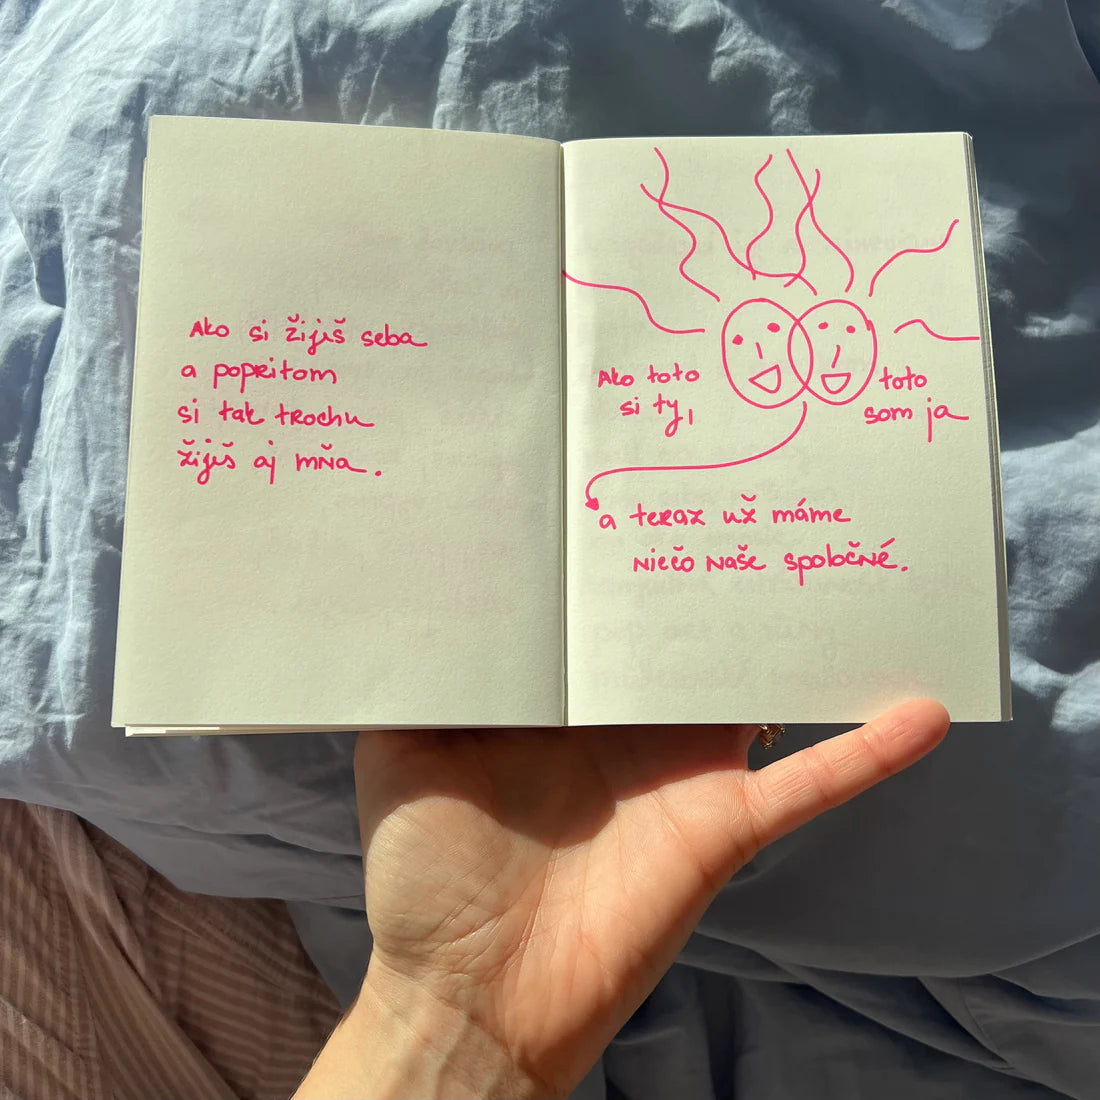 Ako si žiješ seba
a popritom
si tak trochu
žiješ aj mňa.
Ako toto
si ty,
toto
som ja
a teraz už máme
niečo naše spoločné.